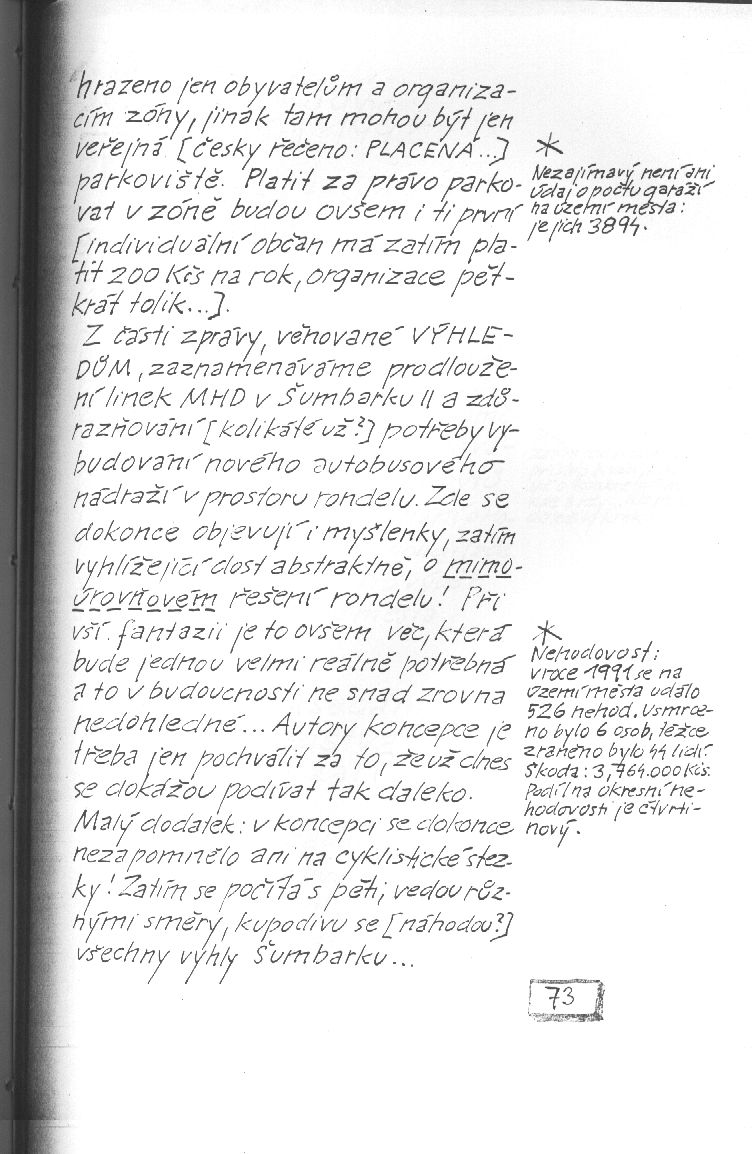 hrazeno jen obyvatelům a organiza-
cím zóny, jinak tam mohou být jen
veřejná [česky řečeno: PLACENÁ...]
parkoviště. Platit za právo parko-
vat v zóně budou ovšem i ti první
[individuální občan má zatím pla-
tit 200 Kčs na rok, organizace pět-
krát tolik...].
Z části zprávy, věnované VÝHLE-
DŮM, zaznamenáváme prodlouže-
ní linek MHD v Šumbarku II a zdů-
razňování [kolikáté už?] potřeby vy-
budování nového autobusového
nádraží v prostoru rondelu. Zde se
dokonce objevují i myšlenky, zatím
vyhlížející dost abstraktně, o mimo-
úrovňovém řešení rondelu! Při
vší fantazii je to ovšem věc, která
bude jednou velmi reálně potřebná
a to v budoucnosti ne snad zrovna
nedohledné... Autory koncepce je
třeba jen pochválit za to, že už dnes
se dokážou podívat tak daleko.
Malý dodatek: v koncepci se dokonce
nezapomnělo ani na cyklistické stez-
ky! Zatím se počítá s pěti, vedou růz-
nými směry, kupodivu se [náhodou?]
všechny vyhly Šumbarku...
*
Nezajímavý není ani
údaj o počtu garáží
na území města:
je jich 3894.
*
Nehodovost:
v roce 1991 se na
území města událo
526 nehod. Usmrce-
no bylo 6 osob, těžce
zraněno bylo 44 lidí.
Škoda: 3,764.000 Kčs.
Podíl na okresní ne-
hodovosti je čtvrti-
nový.
73